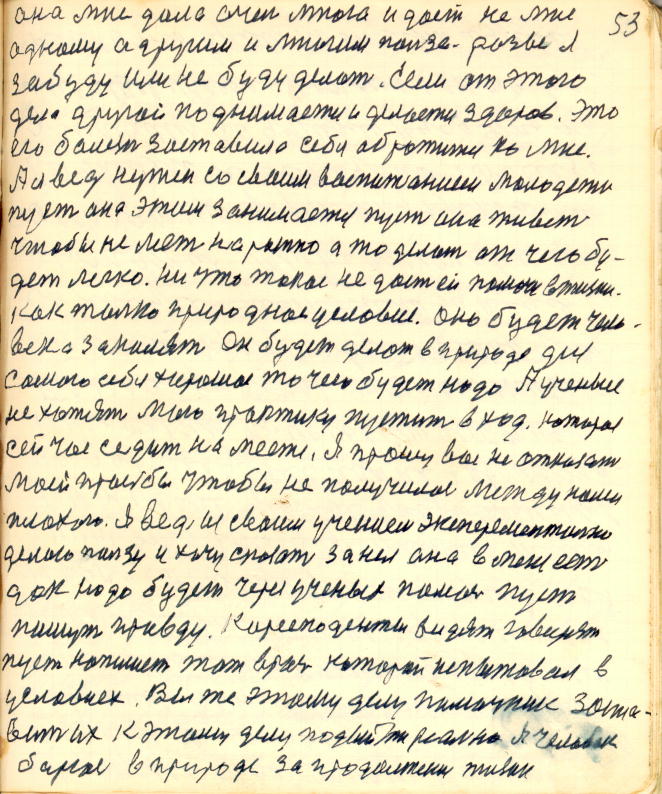 она мне дала смел много и дает не мне 53
одному а другим и многим полза. разве я
забуду или не буду делат. Если от этого
дела другой поднимаети и делаети здоров. Это
его болезн заставила себя обротити ко мне.
А я вед нужен со своим воспитанием молодежи
пуст она этим занимаети пуст она живет
чтобы не лет напрасно а то делат от чего бу-
дет легко. Ни что такое не даст ей помочи в жизни.
как толко природное условие. Оно будет чело-
века закалят Он будет делат в природе для
самого себя хорошое то чего будет надо А ученые
не хотят мою практику пустит в ход. которое
сейчас седит на месте. Я прошу вас не отказат
моей просбы чтобы не получилос между нами
плохого. Я вед и своим учением эксперементално
делаю ползу и хочу сказат за нея она в мене ест
дак надо будет через ученых помоч пуст
пишут правду. Каресподенты видят говорят
пуст напишет тот врач который испытовал в
условиех. Вы же этому делу помочник заста-
вит их к этому делу подойти реално Я человек
борюс в природе за продолжение жизни